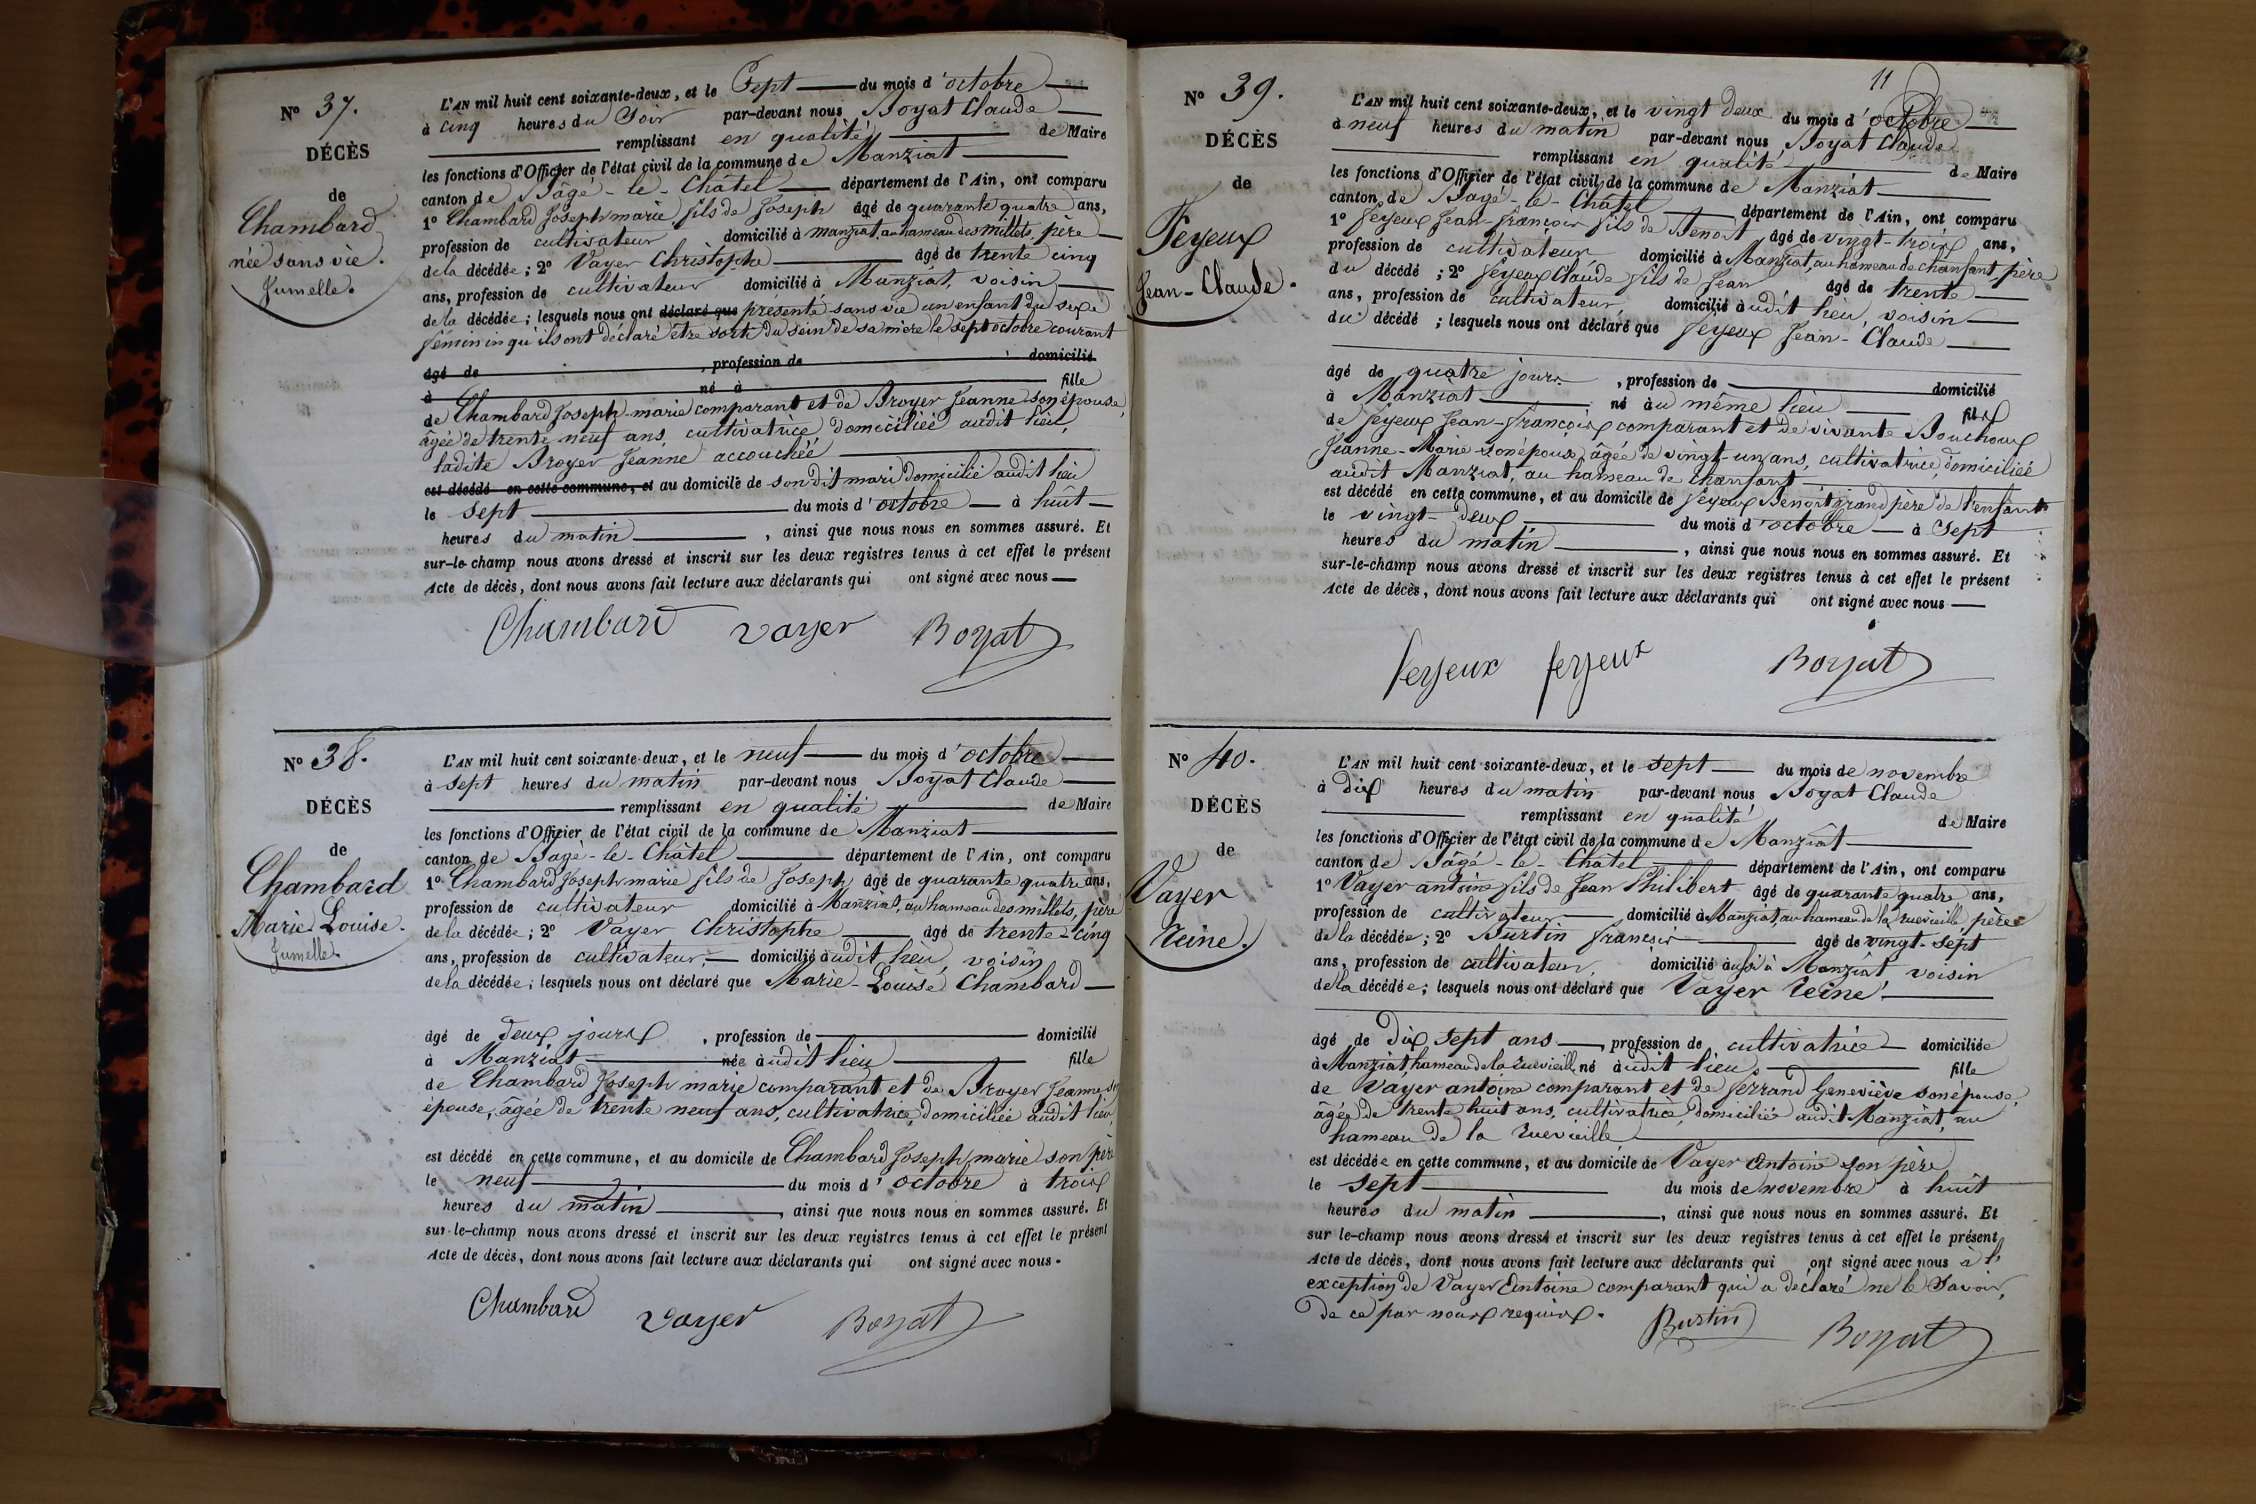 N° 37.
DÉCÈS
de
Chambard
née sans vie.
Jumelle.
L'AN mil huit cent soixante-deux, et le Sept du mois d'octobre
à cinq heures du Soir par-devant nous Boyat Claude
remplissant en qualité de Maire
les fonctions d'Officier de l'état civil de la commune de Manziat
canton de Bâgé-le-Châtel département de l'Ain, ont comparu
1° Chambard Joseph marie fils de Joseph âgé de quarante quatre ans,
profession de cultivateur domicilié à manziat, au hameau des millets, père
de la décédée; 2° Vayer Christophe âgé de trente cinq
ans, profession de cultivateur domicilié à Manziat, voisin
de la décédée; lesquels nous ont déclaré que présenté sans vie un enfant du sexe
féminin qu'ils ont déclaré être sorti du sein de sa mère le sept octobre courant
âgé de , profession de domicilié
à né à fille
de Chambard Joseph-marie comparant et de Broyer Jeanne son épouse,
âgée de trente neuf ans, cultivatrice domiciliée audit lieu,
ladite Broyer Jeanne accouchée
est décédé en cette commune, et au domicile de son dit mari domicilié audit lieu
le sept du mois d'octobre à huit
heures du matin , ainsi que nous nous en sommes assuré. Et
sur-le-champ nous avons dressé et inscrit sur les deux registres tenus à cet effet le présent
Acte de décès, dont nous avons fait lecture aux déclarants qui ont signé avec nous
Chambard vayer Boyat
N° 38.
DÉCÈS
de
Chambard
Marie-Louise.
Jumelle.
L'AN mil huit cent soixante-deux, et le neuf du mois d'octobre
à sept heures du matin par-devant nous Boyat Claude
remplissant en qualité de Maire
les fonctions d'Officier de l'état civil de la commune de Manziat
canton de Bâgé-le-Châtel département de l'Ain, ont comparu
1° Chambard Joseph marie fils de Joseph âgé de quarante quatre ans,
profession de cultivateur domicilié à Manziat, au hameau des millets, père
de la décédée; 2° Vayer Christophe âgé de trente-cinq
ans, profession de cultivateur, domicilié audit lieu, voisin
de la décédée; lesquels nous ont déclaré que Marie-Louise Chambard
âgé de deux jours , profession de domicilié
à Manziat née audit lieu fille
de Chambard Joseph marie comparant et de Broyer Jeanne son
épouse, âgée de trente neuf ans, cultivatrice, domiciliée audit lieu,
est décédé en cette commune, et au domicile de Chambard Joseph marie son père
le neuf du mois d'octobre à trois
heures du matin , ainsi que nous nous en sommes assuré. Et
sur-le-champ nous avons dressé et inscrit sur les deux registres tenus à cet effet le présent
Acte de décès, dont nous avons fait lecture aux déclarants qui ont signé avec nous.
Chambard vayer Boyat
11
N° 39.
DÉCÈS
de
Feyeux
Jean-Claude.
L'AN mil huit cent soixante-deux, et le vingt deux du mois d'octobre
à neuf heures du matin par-devant nous Boyat Claude
remplissant en qualité de Maire
les fonctions d'Officier de l'état civil de la commune de Manziat
canton de Bagé-le-Châtel département de l'Ain, ont comparu
1° feyeux Jean-françois fils de Benoit âgé de vingt-trois ans,
profession de cultivateur domicilié à Manziat, au hameau de chanfant, père
du décédé; 2° feyeux Claude fils de Jean âgé de trente
ans, profession de cultivateur domicilié audit lieu, voisin
du décédé; lesquels nous ont déclaré que feyeux Jean-Claude
âgé de quatre jours , profession de domicilié
à Manziat né au même lieu fils
de feyeux Jean-françois comparant et de vivante Bouchoux
Jeanne-Marie son épouse, âgée de vingt-un ans, cultivatrice, domiciliée
audit Manziat, au hameau de Chanfant
est décédé en cette commune, et au domicile de feyeux Benoit grand père de l'enfant
le vingt-deux du mois d'octobre à Sept
heures du matin , ainsi que nous nous en sommes assuré. Et
sur-le-champ nous avons dressé et inscrit sur les deux registres tenus à cet effet le présent
Acte de décès, dont nous avons fait lecture aux déclarants qui ont signé avec nous
feyeux feyeux Boyat
N° 40.
DÉCÈS
de
Vayer
Reine.
L'AN mil huit cent soixante-deux, et le sept du mois de novembre
à dix heures du matin par-devant nous Boyat Claude
remplissant en qualité de Maire
les fonctions d'Officier de l'état civil de la commune de Manziat
canton de Bâgé-le-Châtel département de l'Ain, ont comparu
1° Vayer antoine fils de Jean Philibert âgé de quarante quatre ans,
profession de cultivateur domicilié à Manziat, au hameau de la ruevieille, père
de la décédée; 2° Burtin françois âgé de vingt-sept
ans, profession de cultivateur, domicilié aussi à Manziat, voisin
de la décédée; lesquels nous ont déclaré que Vayer reine
âgé de Dix sept ans , profession de cultivatrice domiciliée
à Manziat, hameau de la ruevieille, né audit lieu, fille
de Vayer antoine comparant et de ferrand Geneviève son épouse,
âgée de trente huit ans, cultivatrice, domiciliée audit Manziat, au
hameau de la ruevieille
est décédée en cette commune, et au domicile de Vayer Antoine son père
le sept du mois de novembre à huit
heures du matin , ainsi que nous nous en sommes assuré. Et
sur-le-champ nous avons dressé et inscrit sur les deux registres tenus à cet effet le présent
Acte de décès, dont nous avons fait lecture aux déclarants qui ont signé avec nous à l'
exception de Vayer Antoine comparant qui a déclaré ne le savoir,
de ce par nous requis.
Burtin Boyat